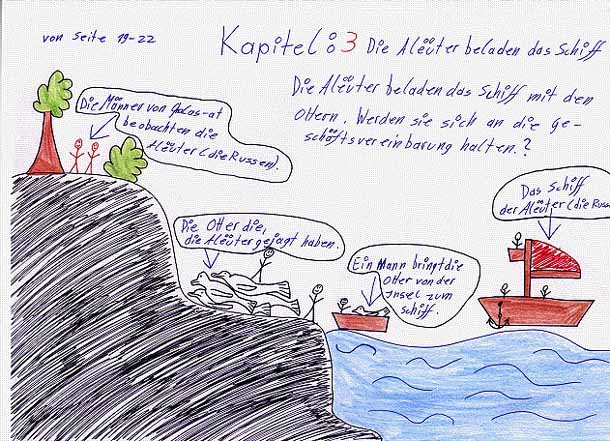 von Seite 19-22
Kapitel: 3 Die Alëuter beladen das Schiff
Die Alëuter beladen das Schiff mit den
Ottern. Werden sie sich an die ge-
schäftsvereinbarung halten.?
Die Männer von Galas-at
beobachten die
Alëuter (die Russen).
Die Otter die,
die Alëuter gejagt haben.
Ein Mann bringt die
Otter von der
Insel zum
Schiff.
Das Schiff
der Alëuter (die Russe